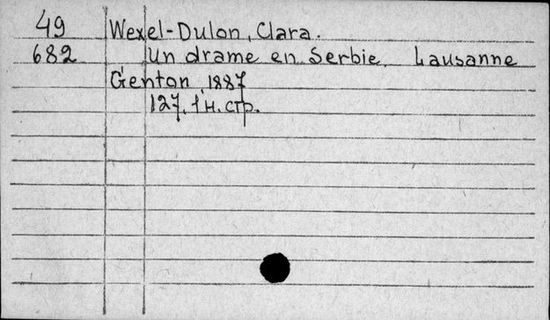 49 Wexel-Dulon, Clara.
682 Un drame en Serbie Lausanne
Genton, 1887
127, 1 н. стр.